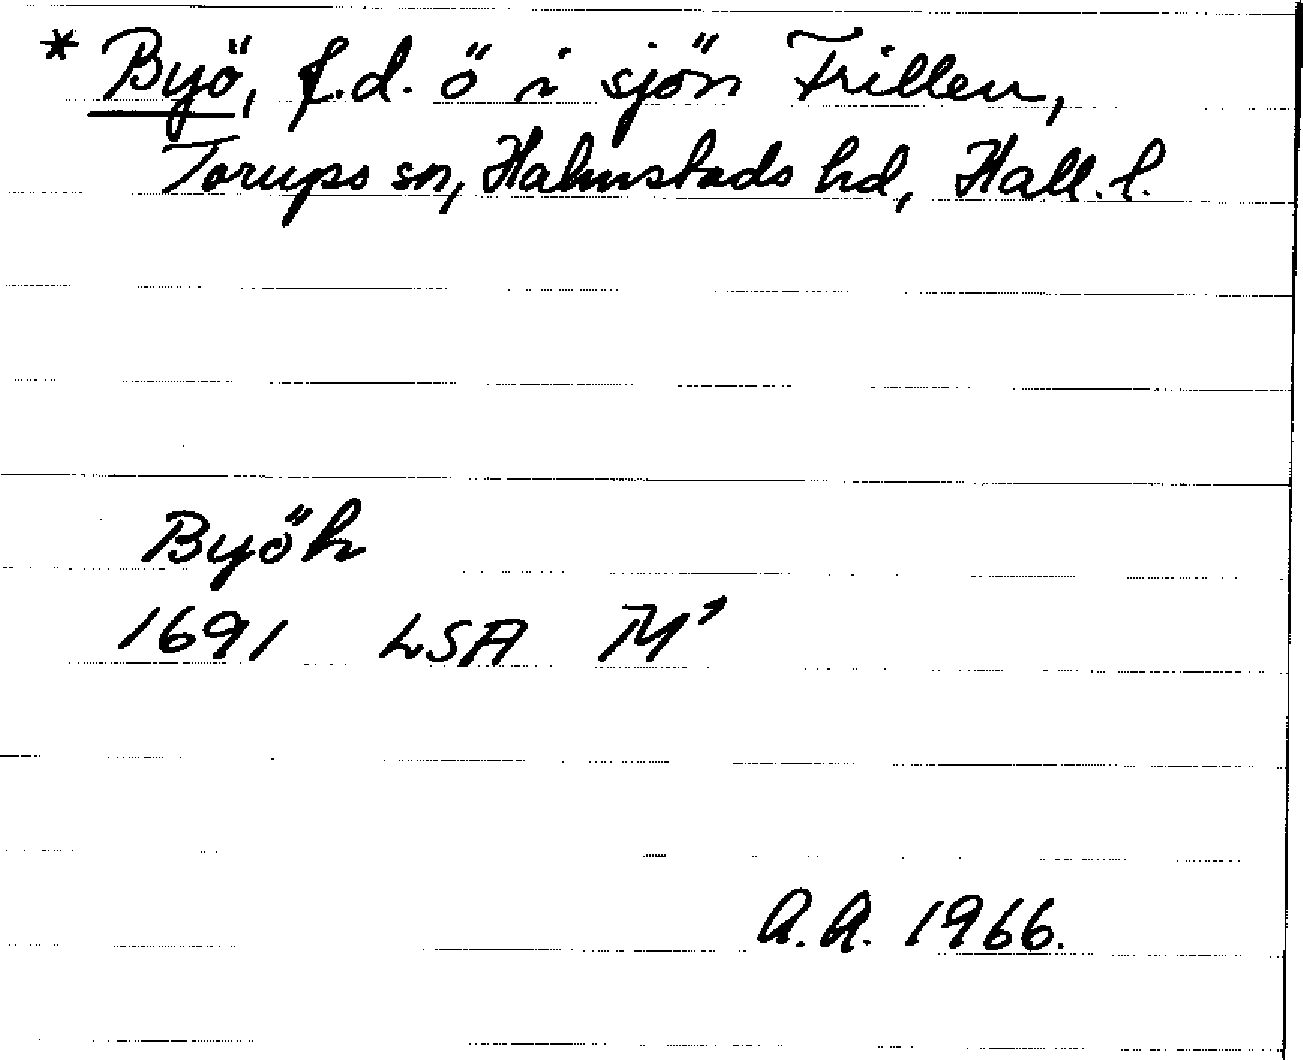 * Byö, f.d. ö i sjön Frillen,
Torups sn, Halmstads hd, Hall. l.
Byöh
1691 LSA M¹
A.A. 1966.